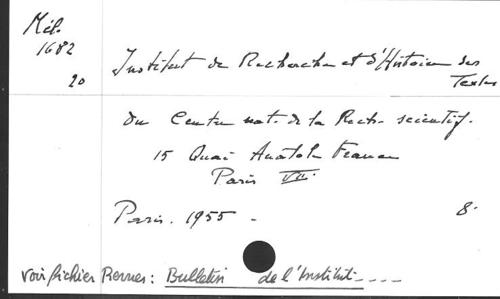 Mél.
1682
20
Institut de Recherche et d'Histoire des
Textes
du Centre nat. de la Rech. scientif.
15 Quai Anatole France
Paris VII.
Paris. 1955 - 8°
Voir fichier Revues: Bulletin de l'Institut ----